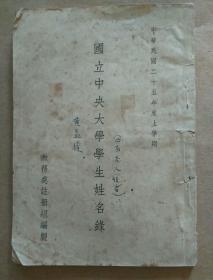 中華民國二十五年度上學期
國立中央大學學生姓名錄
教務處註冊組編製